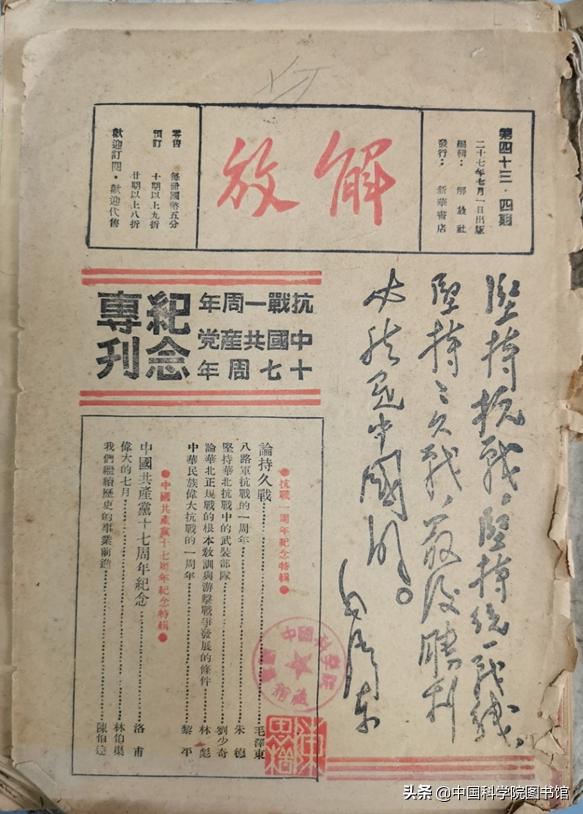 第四十三·四期
二十七年七月一日出版
編輯：解放社
發行：新華書店
解放
零售 每冊國幣五分
預訂 十期以上九折
廿期以上八折
歡迎訂閱·歡迎代售
堅持抗戰，堅持統一戰線，
堅持持久戰，最後勝利
必然是中國的。
毛澤東
抗戰一周年
中國共產党
十七周年
紀念
專刊
●抗戰一周年紀念特輯●
論持久戰……毛澤東
八路軍抗戰的一周年……朱德
堅持華北抗戰中的武裝部隊……劉少奇
論華北正規戰的根本教訓與游擊戰爭發展的條件……林彪
中華民族偉大抗戰的一周年……黎平
●中國共產黨十七周年紀念特輯●
中國共產黨十七周年紀念……洛甫
偉大的七月……林伯渠
我們繼續歷史的事業前進……陳伯達
中國科學院
頭条 @中国科学院图书馆